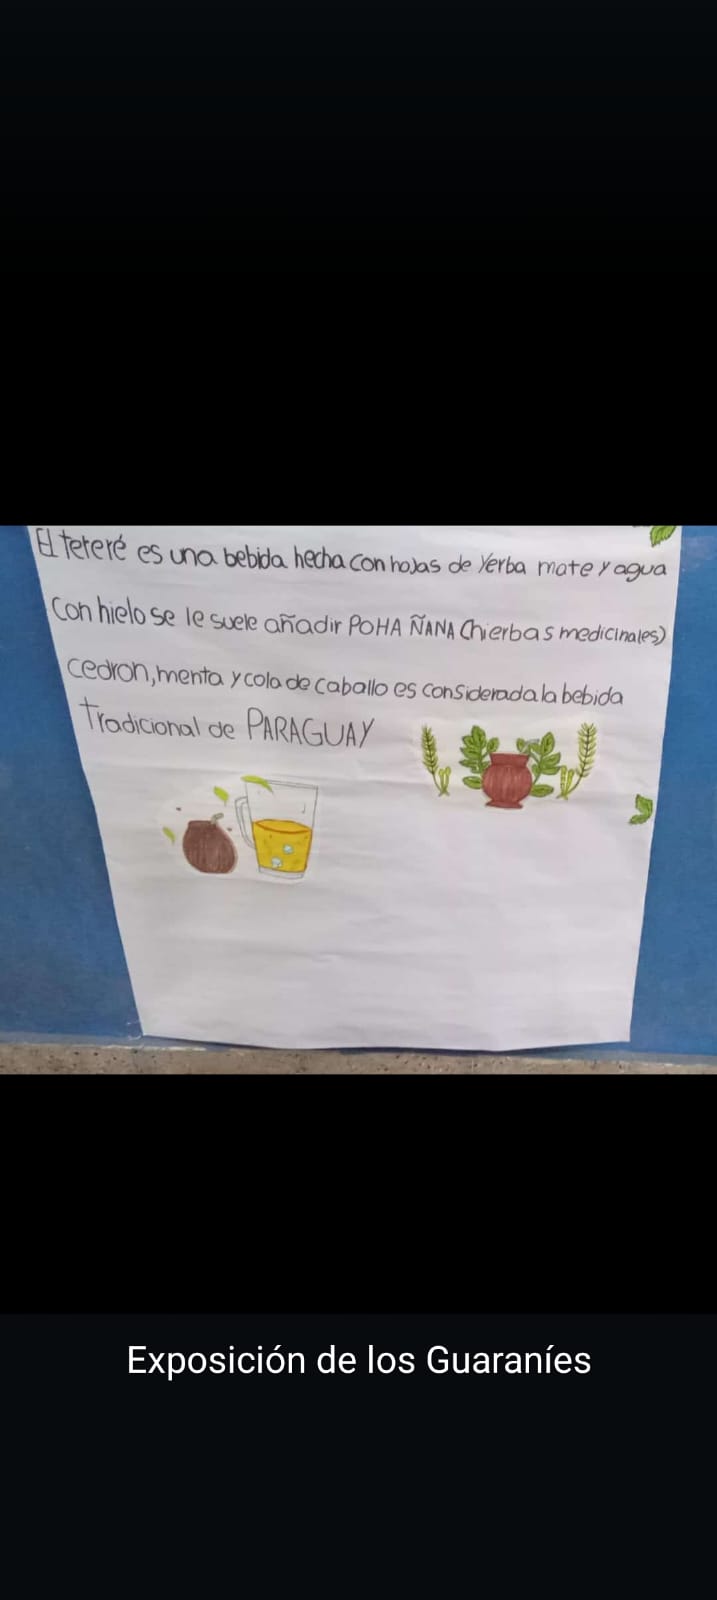 El tereré es una bebida hecha con hojas de Yerba mate y agua
Con hielo se le suele añadir POHA ÑANA (hierbas medicinales)
cedron, menta y cola de caballo es considerada la bebida
Tradicional de PARAGUAY
Exposición de los Guaraníes